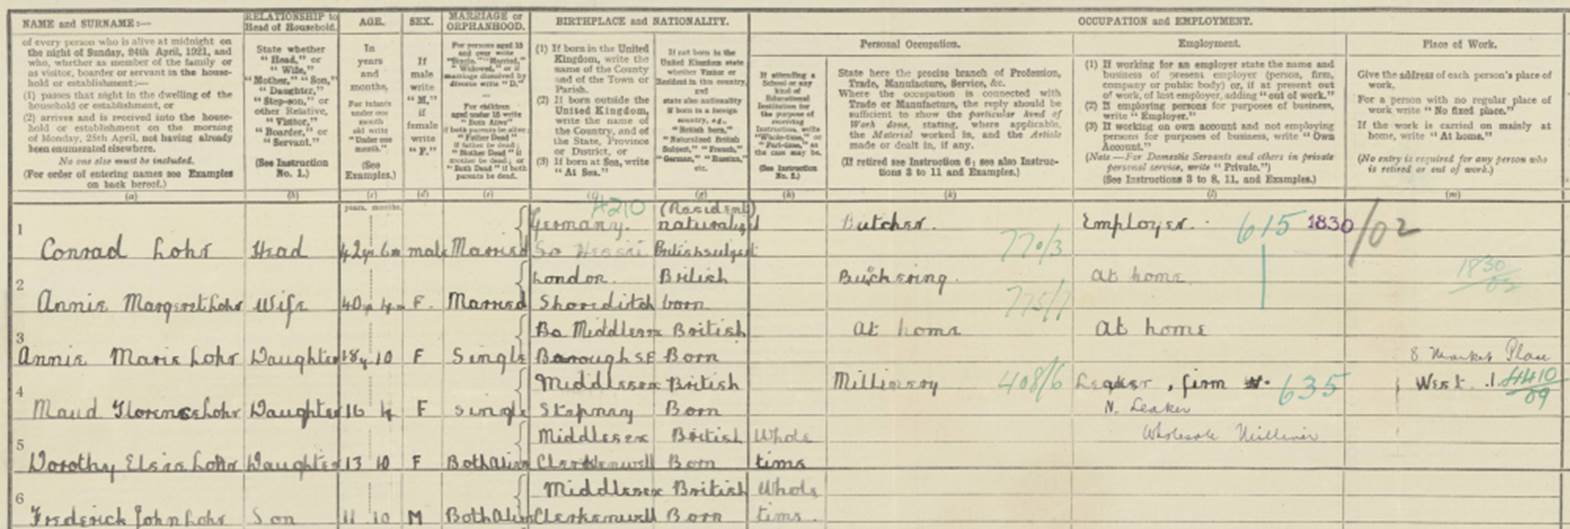 NAME and SURNAME:—
of every person who is alive at midnight on
the night of Sunday, 24th April, 1921, and
who, whether as member of the family or
as visitor, boarder or servant in the house-
hold or establishment:—
(1) passes that night in the dwelling of the
household or establishment, or
(2) arrives and is received into the house-
hold or establishment on the morning
of Monday, 25th April, not having already
been enumerated elsewhere.
No one else must be included.
(For order of entering names see Examples
on back hereof.)
(a)
RELATIONSHIP to
Head of Household.
State whether
"Head," or
"Wife,"
"Mother," "Son,"
"Daughter,"
"Step-son," or
other Relative,
"Visitor,"
"Boarder," or
"Servant."
(See Instruction
No. 1.)
(b)
AGE.
In
years
and
months.
(See
Examples.)
(c)
SEX.
If
male
write
"M,"
if
female
write
"F."
(d)
MARRIAGE or
ORPHANHOOD.
(e)
BIRTHPLACE and NATIONALITY.
(1) If born in the United
Kingdom, write the
name of the County
and of the Town or
Parish.
(2) If born outside the
United Kingdom,
write the name of
the Country, and of
the State, Province
or District, or
(3) If born at Sea, write
"At Sea."
(g)
(h)
OCCUPATION and EMPLOYMENT.
Personal Occupation.
State here the precise branch of Profession,
Trade, Manufacture, Service, &c.
Where the occupation is connected with
Trade or Manufacture, the reply should be
sufficient to show the particular kind of
Work done, stating, where applicable,
the Material worked in, and the Article
made or dealt in, if any.
(If retired see Instruction 6; see also Instruc-
tions 3 to 11 and Examples.)
(k)
Employment.
(1) If working for an employer state the name and
business of present employer (person, firm,
company or public body) or, if at present out
of work, of last employer, adding "out of work."
(2) If employing persons for purposes of business,
write "Employer."
(3) If working on own account and not employing
persons for purposes of business, write "Own
Account."
(Note—For Domestic Servants and others in private
personal service, write "Private.")
(See Instructions 3 to 8, 11, and Examples.)
(l)
Place of Work.
Give the address of each person's place of
work.
For a person with no regular place of
work write "No fixed place."
If the work is carried on mainly at
home, write "At home."
(No entry is required for any person who
is retired or out of work.)
(m)
years. months.
4210
(Resident)
1
Germany. naturalised
Butcher. Employer. 615 1830 /02
Conrad Lohr Head 42 6 male Married British subject
770/3
2
London British
Butchering. at home 1830/02
Annie Margaret Lohr Wife 40 F. Married Shoreditch born
775/7
3
Middlesex British
at home at home
Annie Marie Lohr Daughter 18 10 F Single Borough SE Born
8 Market Place
4
Middlesex British
Millinery 408/6 Leaker, firm 635 West. 1. 4410/09
Maud Florence Lohr Daughter 16 4 F single Stepney Born
N. Leaker
Wholesale Milliner
5
Middlesex British Whole
Dorothy Elsie Lohr Daughter 13 10 F Both Alive Clerkenwell Born time
6
Middlesex British Whole
Frederick John Lohr Son 11 10 M Both Alive Clerkenwell Born time.